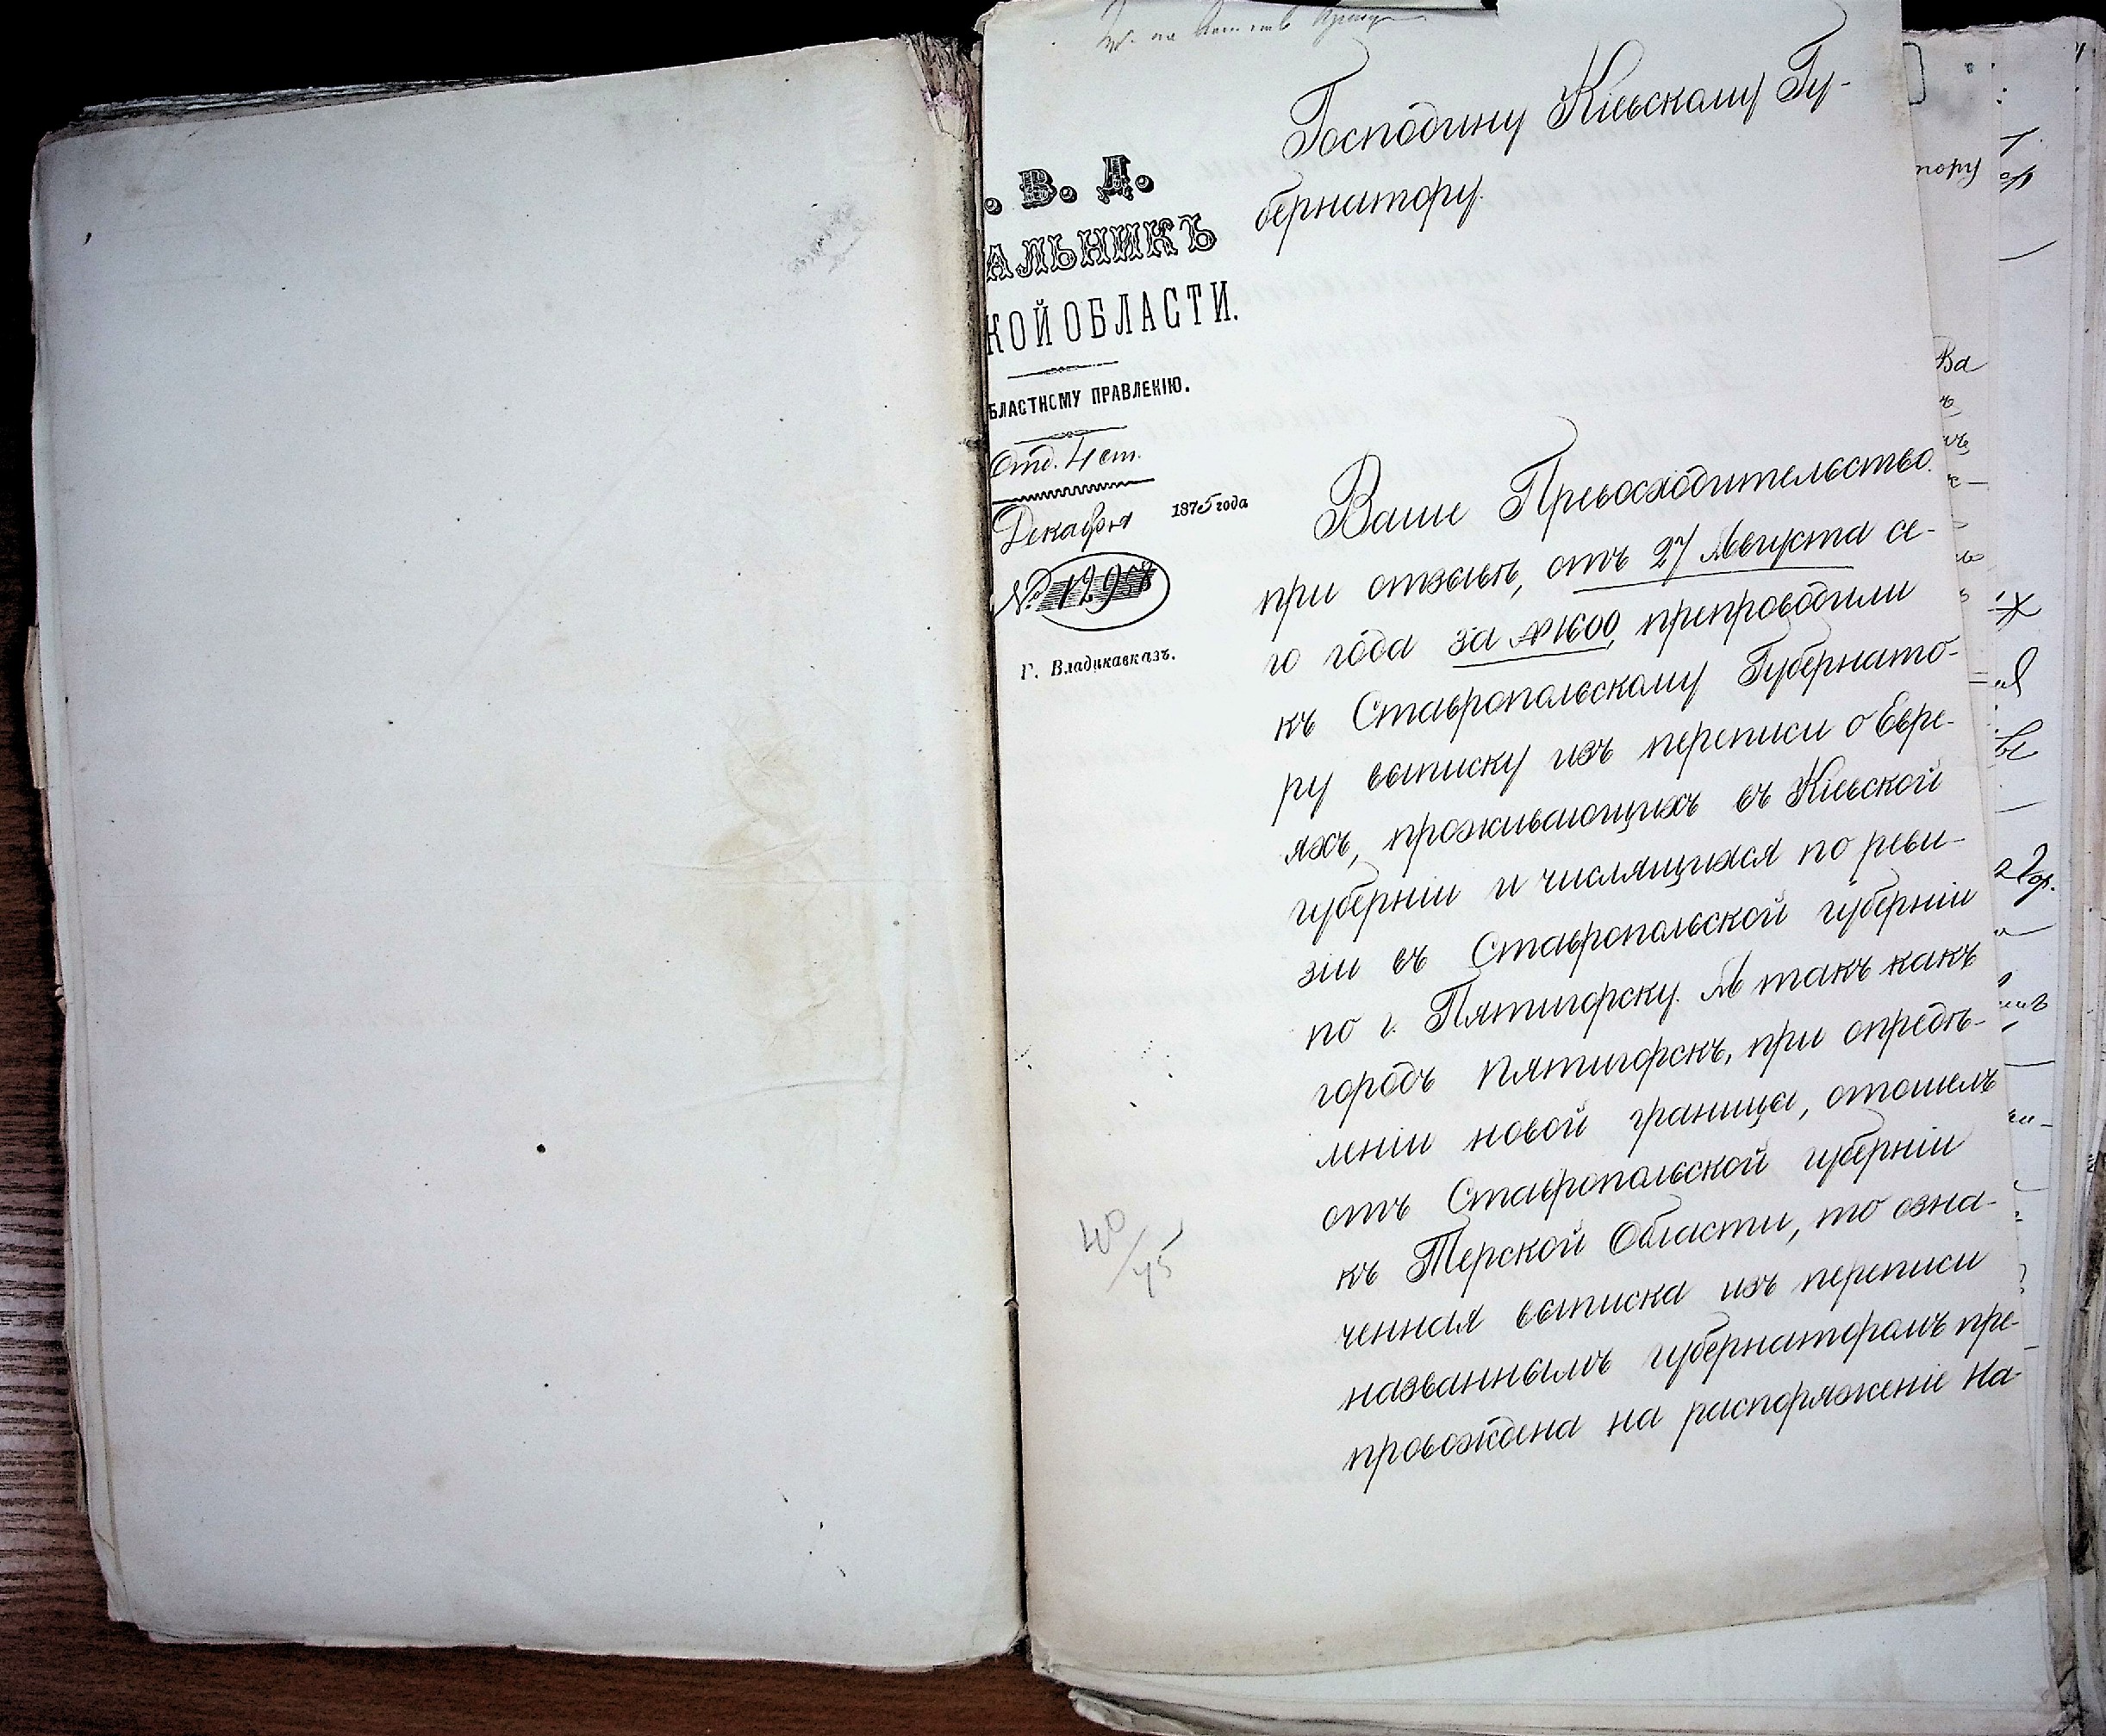 Господину Кіевскому Гу-
бернатору.
. В. Д.
АЛЬНИКЪ
КОЙ ОБЛАСТИ.
БЛАСТНОМУ ПРАВЛЕНІЮ.
Отд. 4 ст.
Декабря 1875 года
№ 12958
Г. Владикавказъ.
Ваше Превосходительство
при отзывѣ, отъ 27 Августа се-
го года за № 1600, препроводили
къ Ставропольскому Губернато-
ру выписку изъ переписи о Евре-
яхъ, проживающихъ въ Кіевской
губерніи и числящихся по реви-
зіи въ Ставропольской губерніи
по г. Пятигорску. А такъ какъ
городъ Пятигорскъ, при опредѣ-
леніи новой границы, отошелъ
отъ Ставропольской губерніи
къ Терской Области, то озна-
ченная выписка изъ переписи
названнымъ губернаторомъ пре-
провождена на распоряженіе На-
40/45
тору
Ва